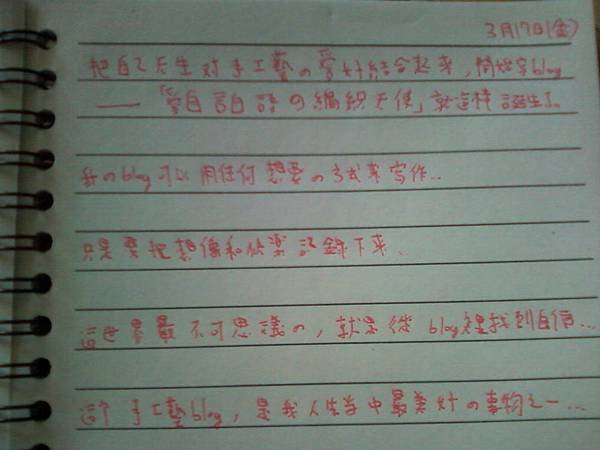 3月17日(金)
把自己天生对手工藝の愛好結合起来,開始写blog
——「愛自言自語の編織天使」就這樣誕生了。
我のblog可以用任何想要の方式来写作..
只是要把想像和快樂記錄下来..
這世界最不可思議の,就是從blog裡找到自信...
這个手工藝blog,是我人生当中最美好の事物之一...